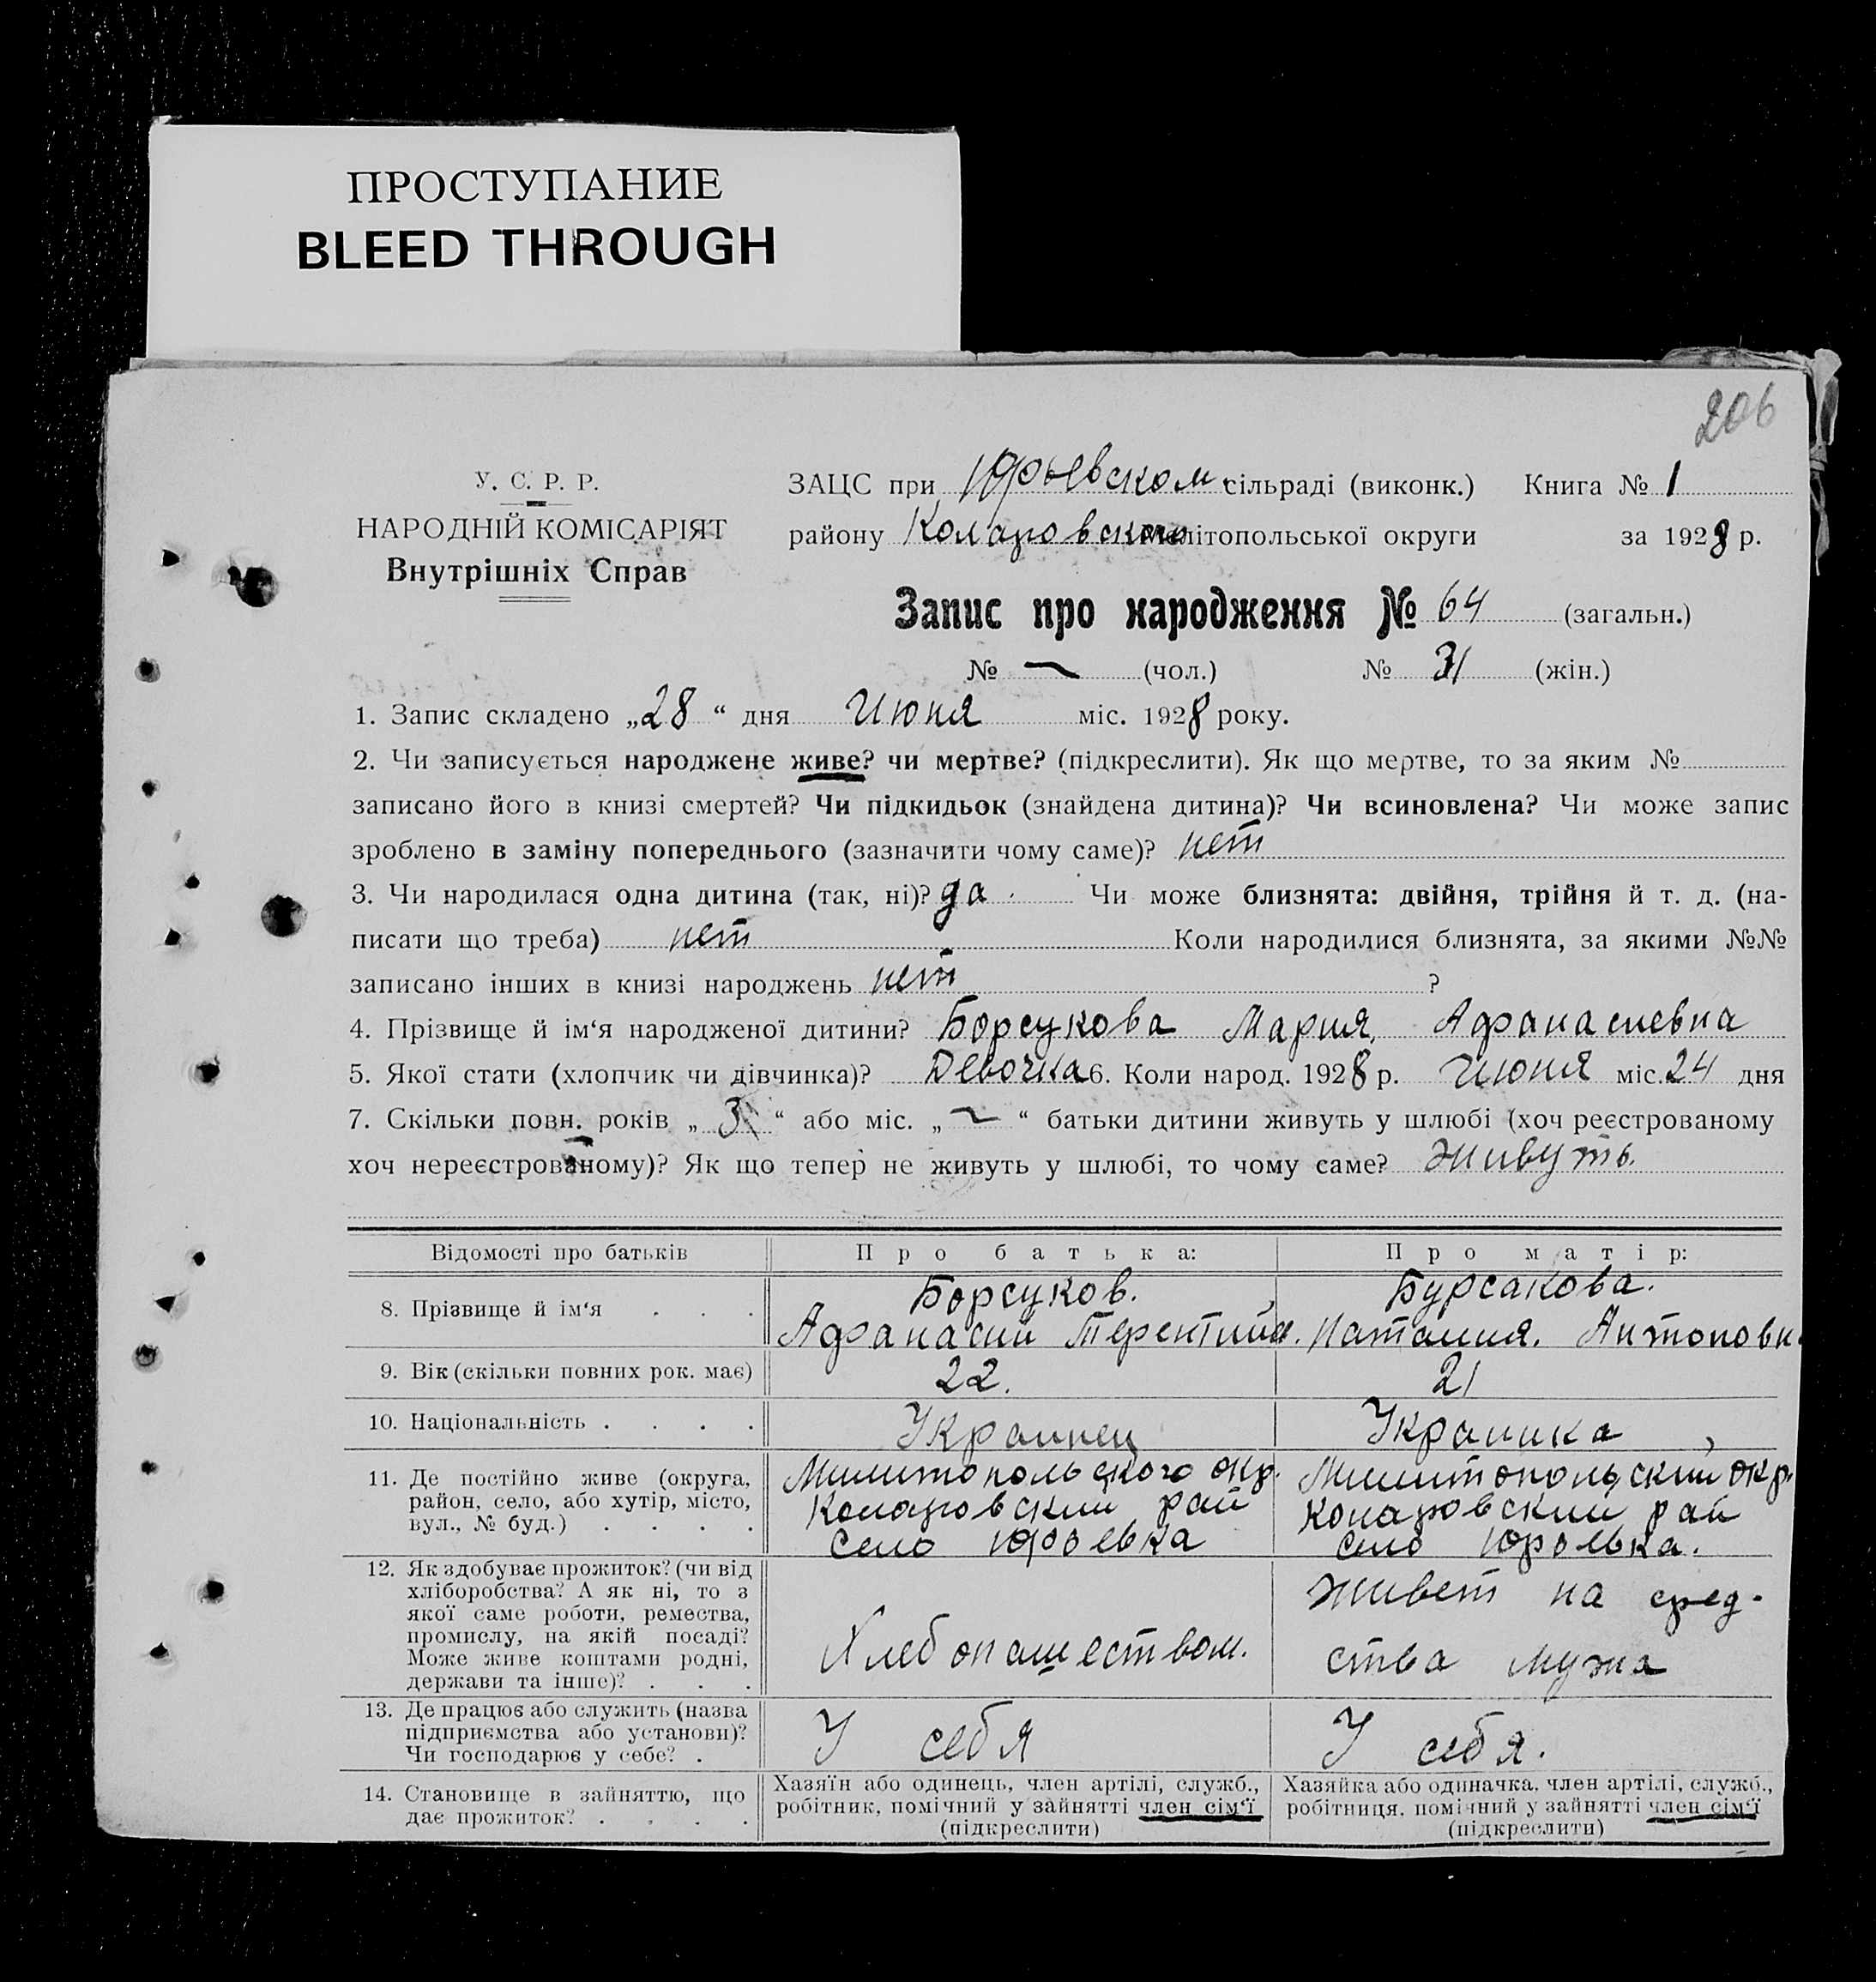 ПРОСТУПАНИЕ
BLEED THROUGH
206
У. С. Р. Р.
НАРОДНІЙ КОМІСАРІЯТ
Внутрішніх Справ
ЗАЦС при Юрьевском сільраді (виконк.) Книга № 1
району Коларовского Мелітопольської округи за 1928 р.
Запис про народження № 64 (загальн.)
№ — (чол.) № 31 (жін.)
1. Запис складено „28“ дня Июня міс. 1928 року.
2. Чи записується народжене живе? чи мертве? (підкреслити). Як що мертве, то за яким №
записано його в книзі смертей? Чи підкидьок (знайдена дитина)? Чи всиновлена? Чи може запис
зроблено в заміну попереднього (зазначити чому саме)? нет
3. Чи народилася одна дитина (так, ні)? да Чи може близнята: двійня, трійня й т. д. (на-
писати що треба) нет Коли народилися близнята, за якими №№
записано інших в книзі народжень нет ?
4. Прізвище й ім‘я народженої дитини? Борсукова Мария Афанасиевна
5. Якої стати (хлопчик чи дівчинка)? Девочка 6. Коли народ. 1928 р. Июня міс. 24 дня
7. Скільки повн. років „3“ або міс. „—“ батьки дитини живуть у шлюбі (хоч реєстрованому
хоч нереєстрованому)? Як що тепер не живуть у шлюбі, то чому саме? Живуть.
Відомості про батьків Про батька: Про матір:
8. Прізвище й ім‘я . . .
Борсуков.
Афанасий Терентий
Бурсакова.
Наталия. Антоновн
9. Вік (скільки повних рок. має) 22. 21
10. Національність . . . . Украинец Украинка
11. Де постійно живе (округа,
район, село, або хутір, місто,
вул., № буд.) . . . .
Милитопольского окр.
Коларовский рай
село Юрьевка
Милитопольский окр.
Коларовский рай
село Юрьевка.
12. Як здобуває прожиток? (чи від
хліборобства? А як ні, то з
якої саме роботи, ремества,
промислу, на якій посаді?
Може живе коштами родні,
держави та інше)? . . .
Хлебопашеством.
Живет на сред-
ства мужа
13. Де працює або служить (назва
підприємства або установи)?
Чи господарює у себе? .
У себя
У себя.
14. Становище в зайняттю, що
дає прожиток? . . . .
Хазяїн або одинець, член артілі, служб.,
робітник, помічний у зайнятті член сім‘ї
(підкреслити)
Хазяйка або одиначка, член артілі, служб.,
робітниця, помічний у зайнятті член сім‘ї
(підкреслити)